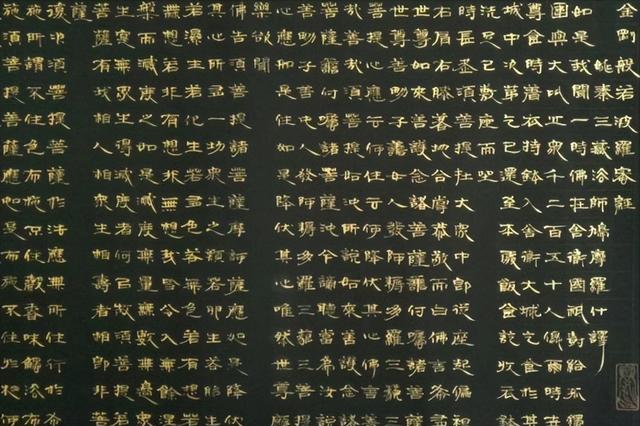 金剛般若波羅蜜經
姚秦三藏法師鳩摩羅什譯
如是我聞一時佛在舍衛國祇樹給孤獨
園與大比丘眾千二百五十人俱爾時世
尊食時著衣持鉢入舍衛大城乞食於其
城中次第乞已還至本處飯食訖收衣鉢
洗足已敷座而坐
時長老須菩提在大眾中即從座起偏袒
右肩右膝著地合掌恭敬而白佛言希有
世尊如來善護念諸菩薩善付囑諸菩薩
世尊善男子善女人發阿耨多羅三藐三
菩提心應云何住云何降伏其心佛言善
哉善哉須菩提如汝所說如來善護念諸
菩薩善付囑諸菩薩汝今諦聽當為汝說
善男子善女人發阿耨多羅三藐三菩提
心應如是住如是降伏其心唯然世尊願
樂欲聞
佛告須菩提諸菩薩摩訶薩應如是降伏
其心所有一切眾生之類若卵生若胎生
若濕生若化生若有色若無色若有想若
無想若非有想非無想我皆令入無餘涅
槃而滅度之如是滅度無量無數無邊眾
生實無眾生得滅度者何以故須菩提若
菩薩有我相人相眾生相壽者相即非菩
薩
復次須菩提菩薩於法應無所住行於布
施所謂不住色布施不住聲香味觸法布
施須菩提菩薩應如是布施不住於相何